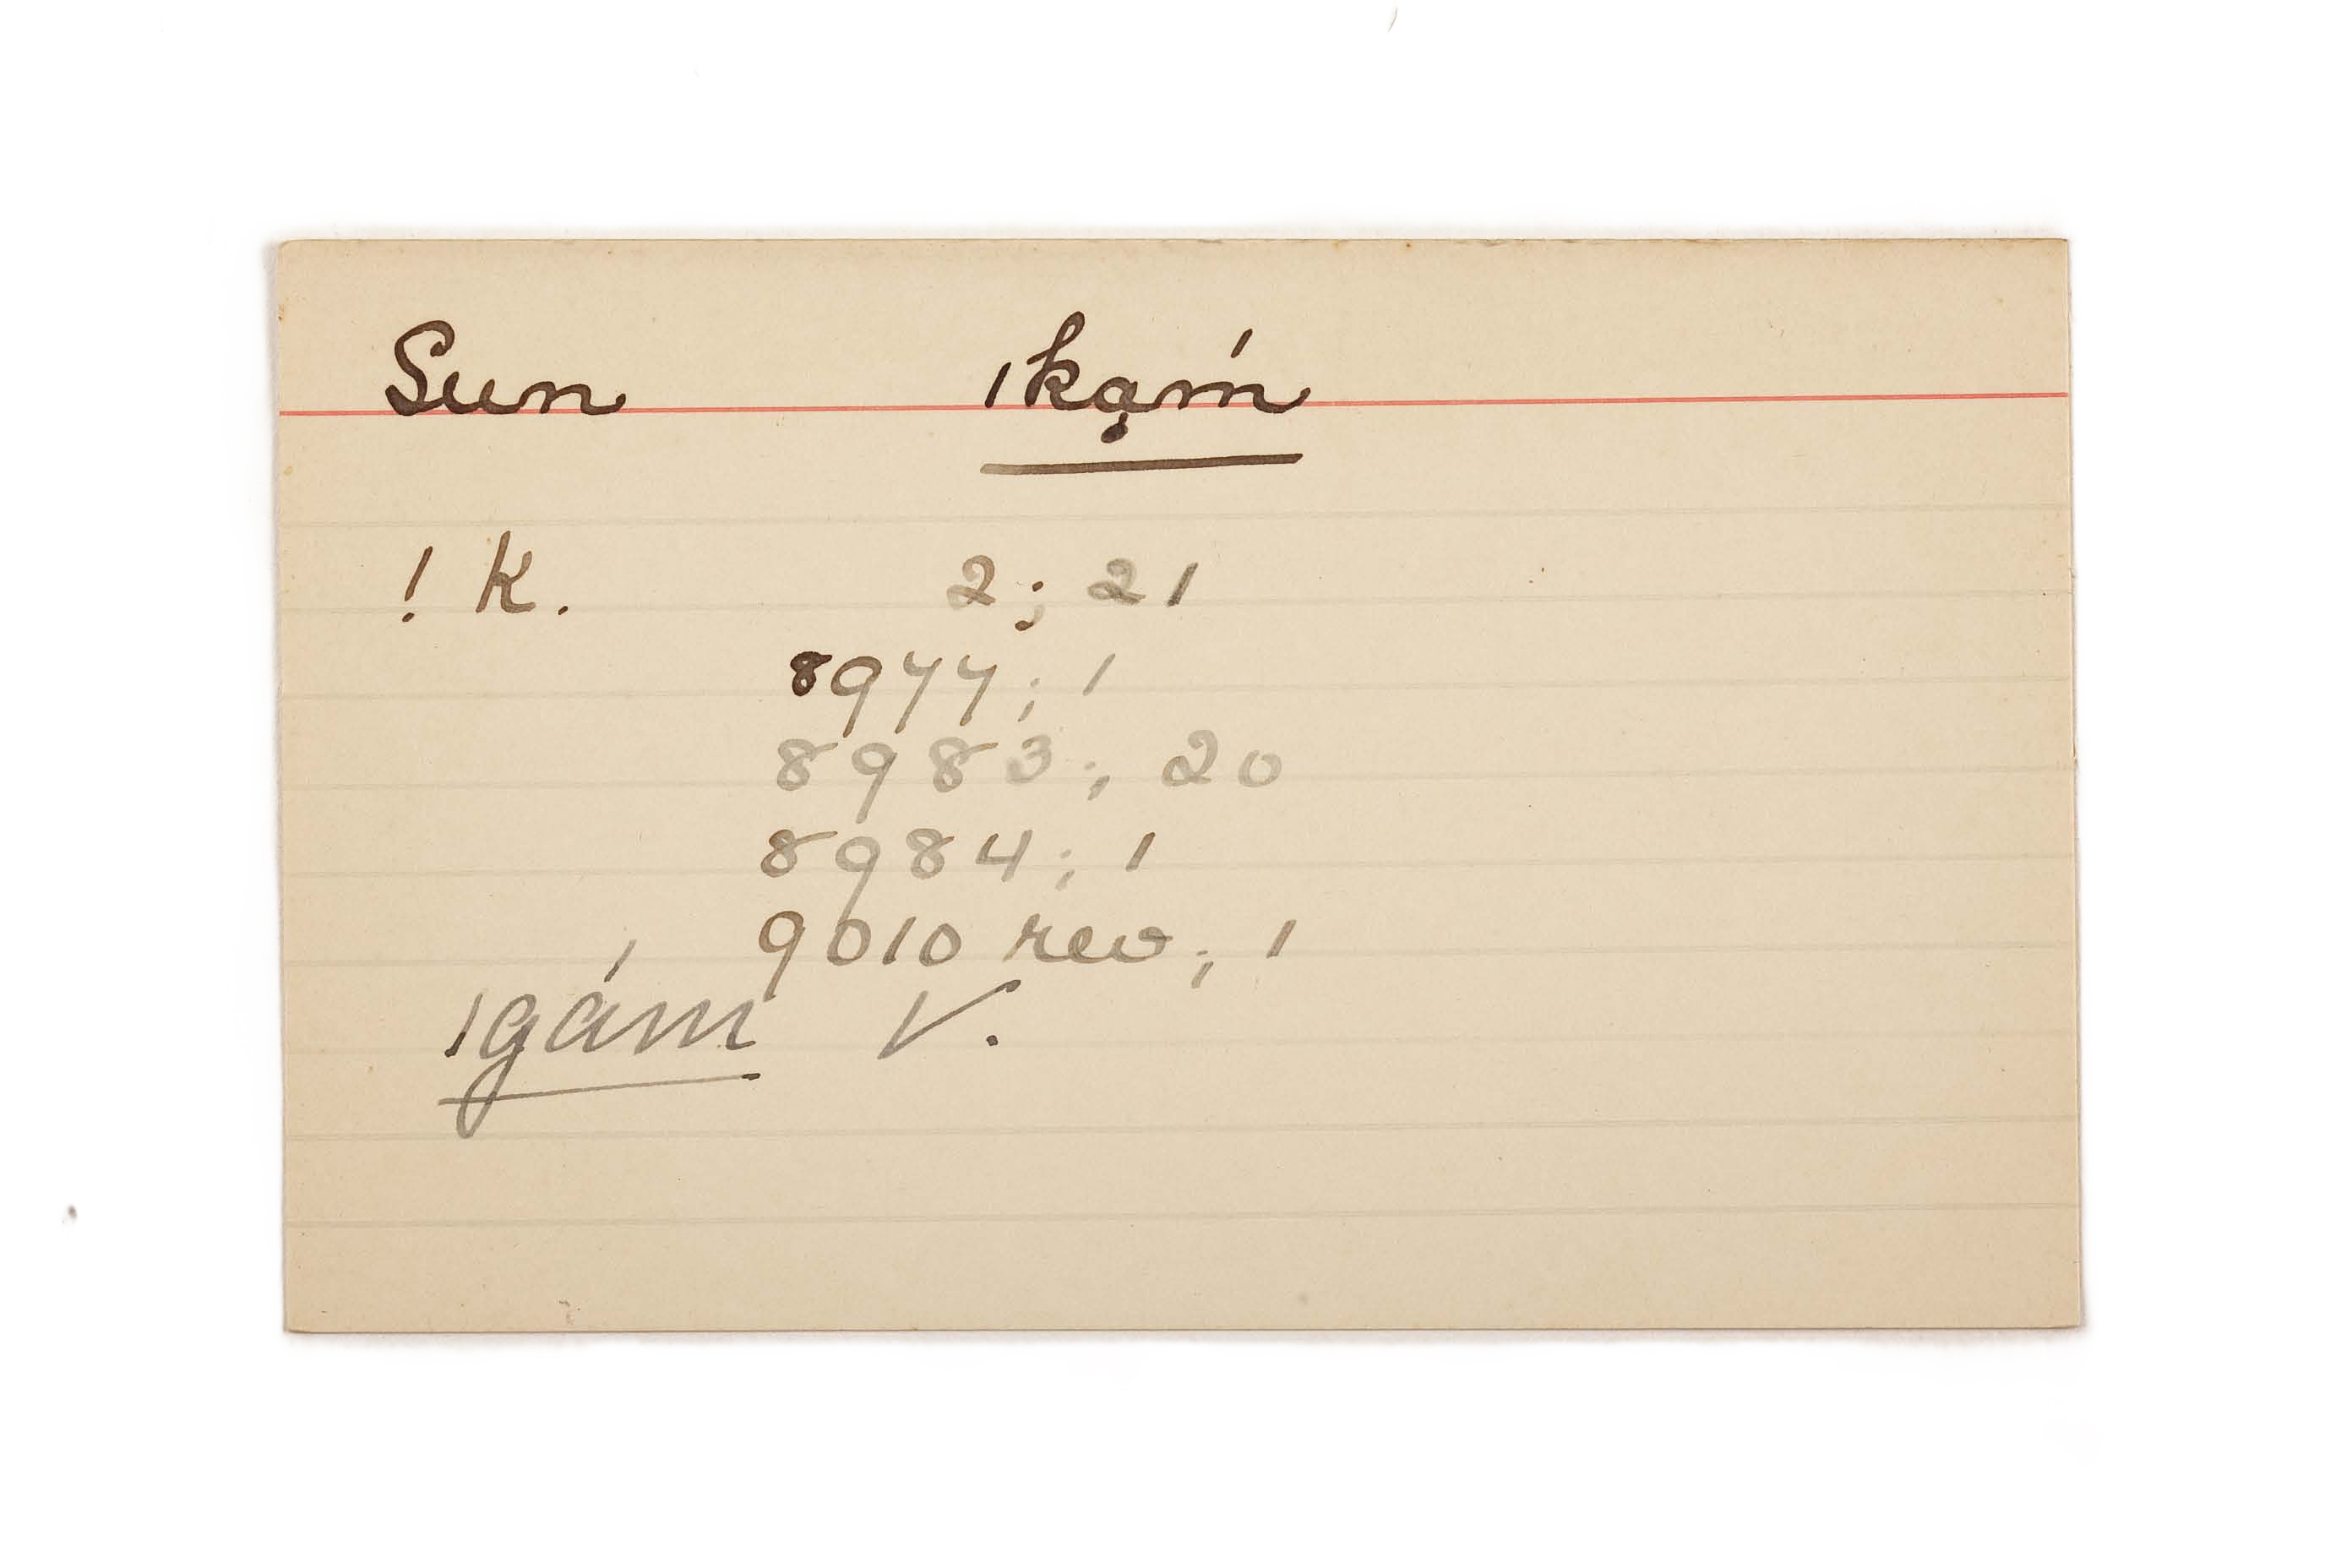 Sun ıkạḿ
! K. 2; 21
8977; 1
8983; 20
8984; 1
9010 rev; 1
ıgám V.